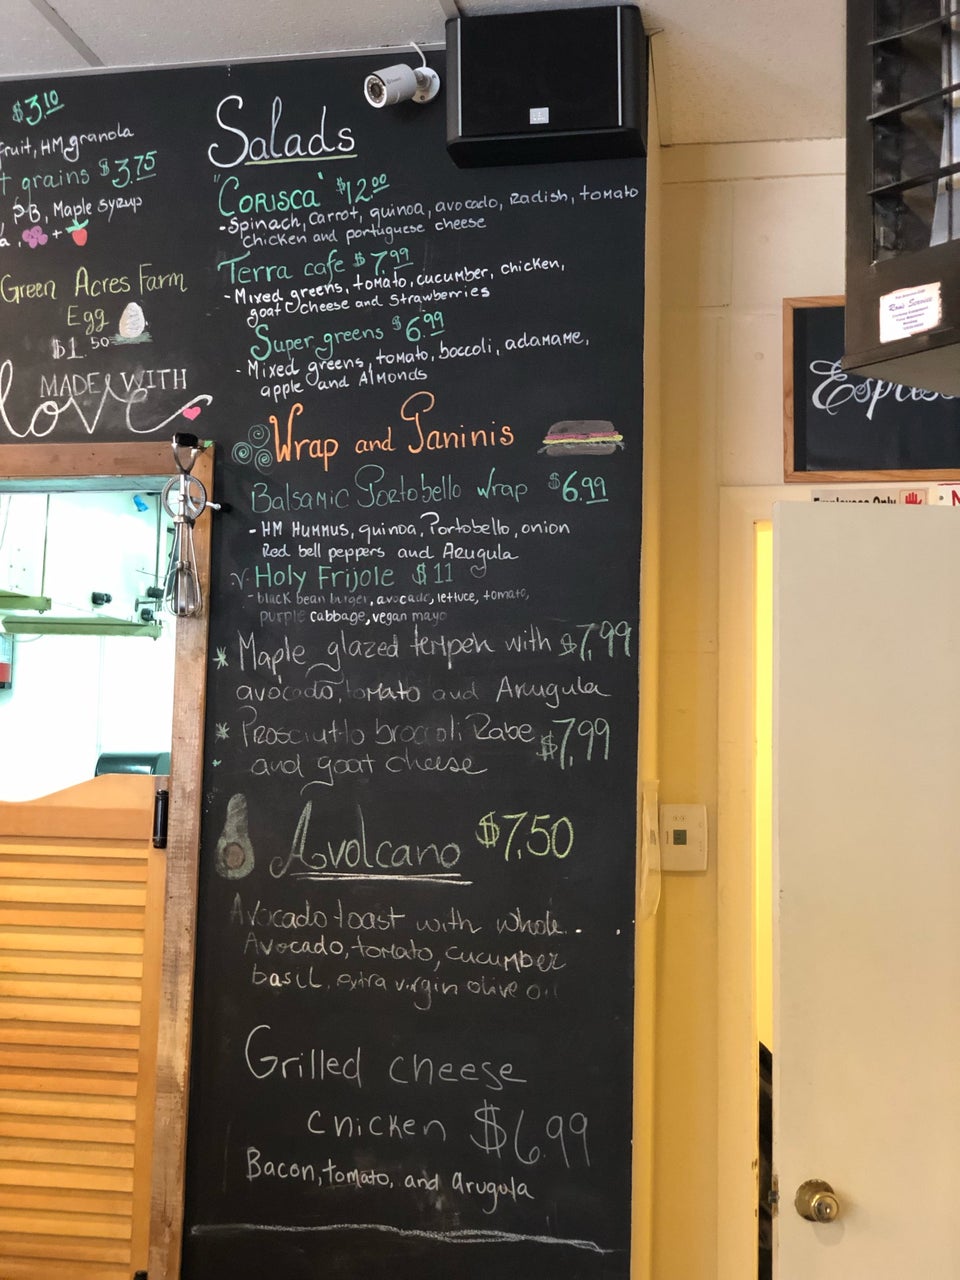 $3.10
fruit, HM granola
grains $3.75
, PB, Maple syrup
+
Green Acres Farm
Egg
$1.50
MADE WITH
love
Salads
"Corisca" $12.00
- Spinach, Carrot, quinoa, avocado, Radish, tomato
chicken and portuguese cheese
Terra cafe $7.99
- Mixed greens, tomato, cucumber, chicken,
goat cheese and strawberries
Super greens $6.99
- Mixed greens, tomato, boccoli, adamame,
apple and Almonds
Wrap and Paninis
Balsamic Portobello wrap $6.99
- HM Hummus, quinoa, Portobello, onion
Red bell peppers and Arugula
V. Holy Frijole $11
- black bean burger, avocado, lettuce, tomato,
purple cabbage, vegan mayo
* Maple glazed tempeh with $7,99
avocado, tomato and Arugula
* Prosciutto broccoli Rabe $7,99
and goat cheese
Avolcano $7,50
Avocado toast with whole. .
Avocado, tomato, cucumber
basil, extra virgin olive oil
Grilled cheese
chicken $6.99
Bacon, tomato, and Arugula
Ron's Service
Espres
Employees Only
N